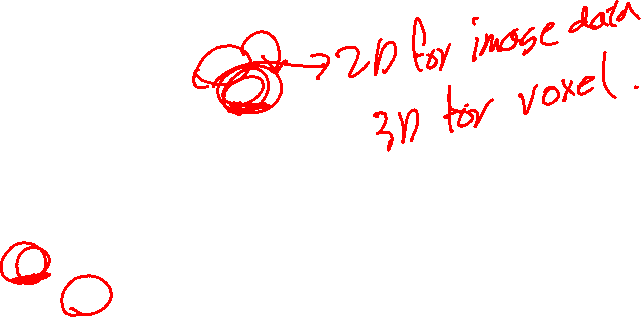 2D for image data
3D for voxel.